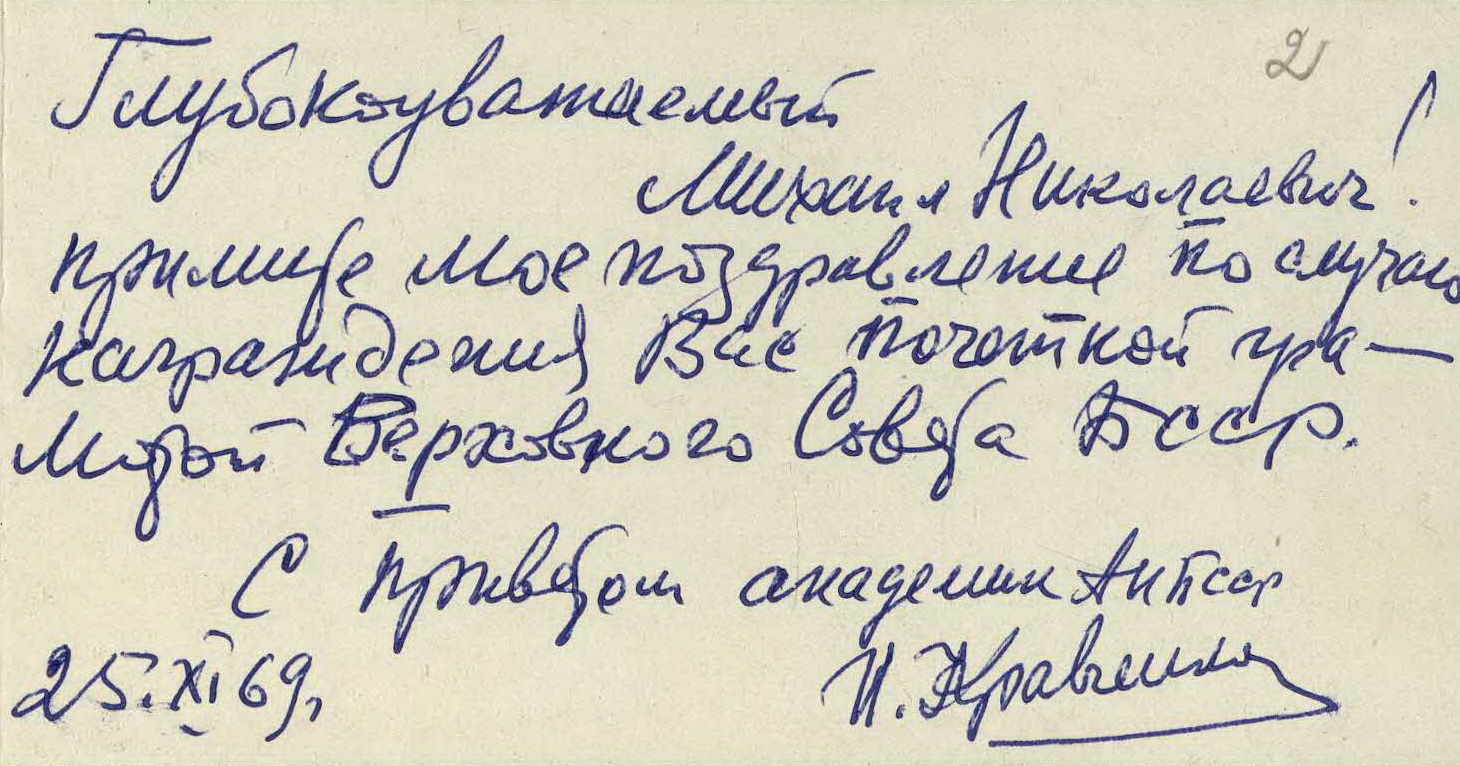 2
Глубокоуважаемый
Михаил Николаевич!
примите мое поздравление по случаю
награждения Вас почетной гра-
мотой Верховного Совета БССР.
С приветом академик АН БССР
25.XI 69г.
И. Кравченко